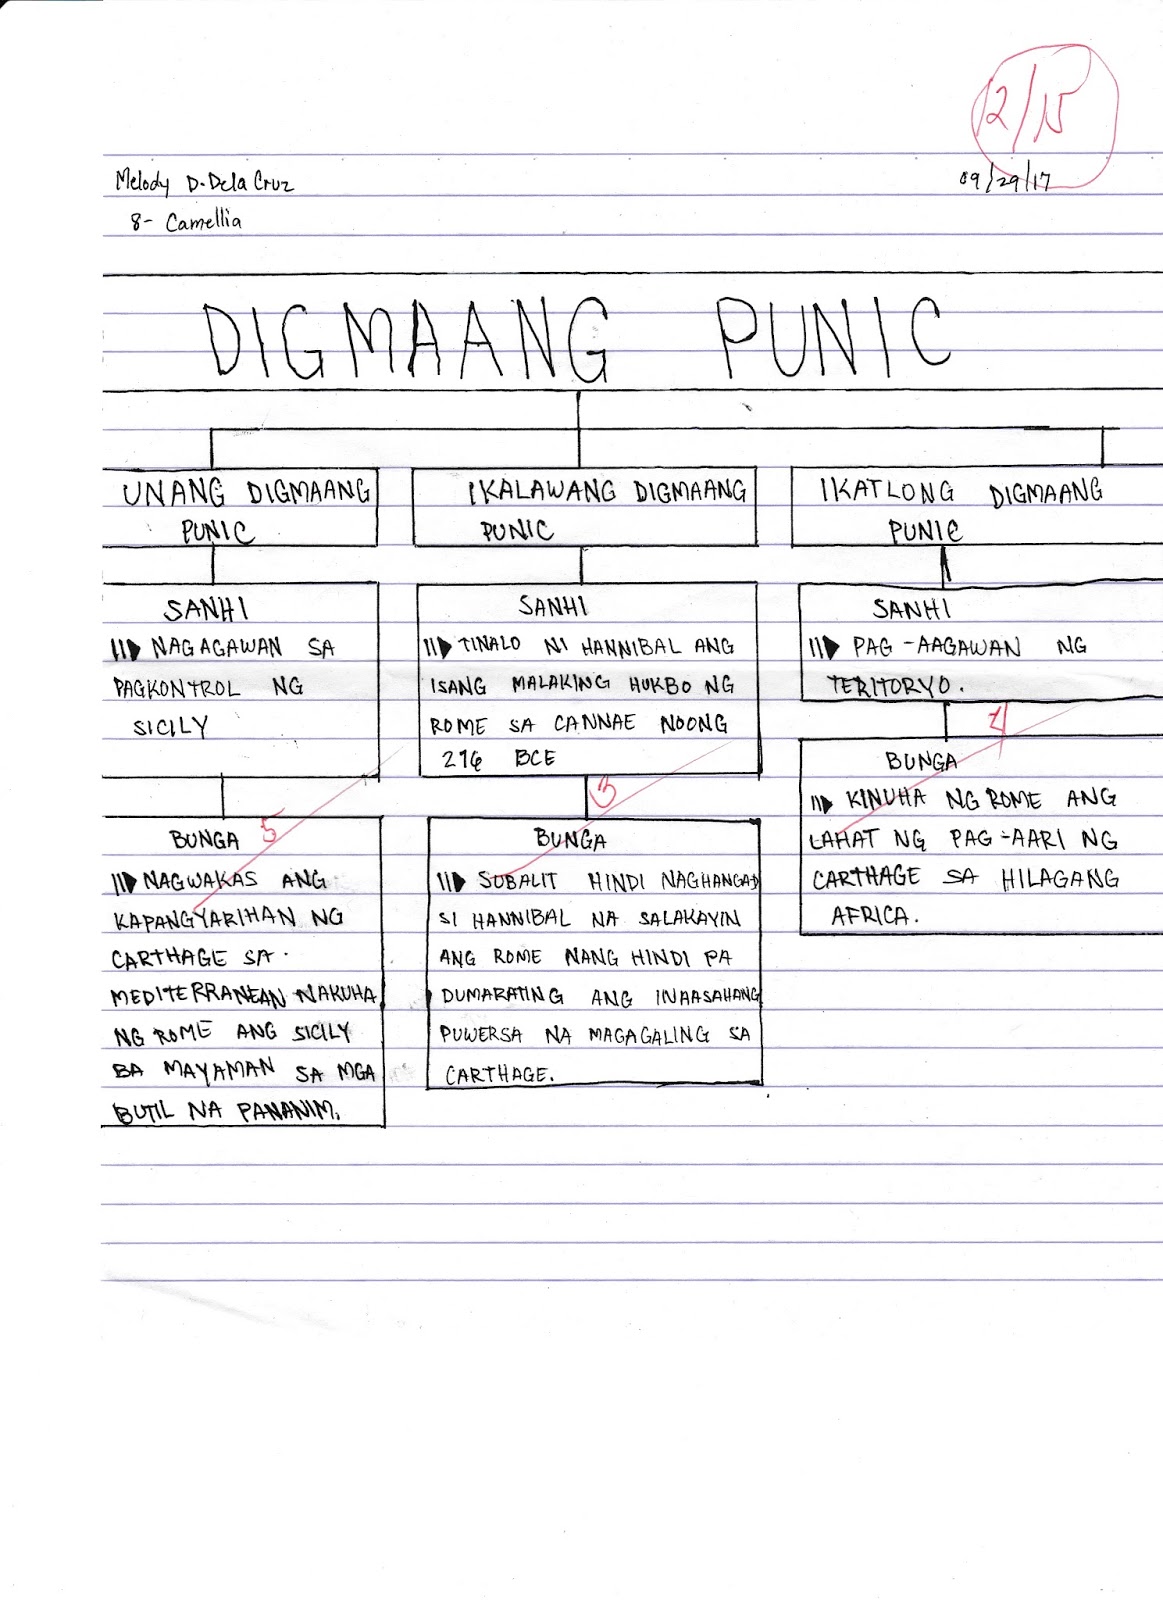 12/15
Melody D. Dela Cruz
09/29/17
8- Camellia
DIGMAANG PUNIC
UNANG DIGMAANG
PUNIC
SANHI
NAGAGAWAN SA
PAGKONTROL NG
SICILY
5
BUNGA
NAGWAKAS ANG
KAPANGYARIHAN NG
CARTHAGE SA
MEDITERRANEAN NAKUHA
NG ROME ANG SICILY
BA MAYAMAN SA MGA
BUTIL NA PANANIM.
IKALAWANG DIGMAANG
PUNIC
SANHI
TINALO NI HANNIBAL ANG
ISANG MALAKING HUKBO NG
ROME SA CANNAE NOONG
216 BCE
3
BUNGA
SUBALIT HINDI NAGHANGAD
SI HANNIBAL NA SALAKAYIN
ANG ROME NANG HINDI PA
DUMARATING ANG INAASAHANG
PUWERSA NA MAGAGALING SA
CARTHAGE.
IKATLONG DIGMAANG
PUNIC
SANHI
PAG-AAGAWAN NG
TERITORYO.
4
BUNGA
KINUHA NG ROME ANG
LAHAT NG PAG-AARI NG
CARTHAGE SA HILAGANG
AFRICA.